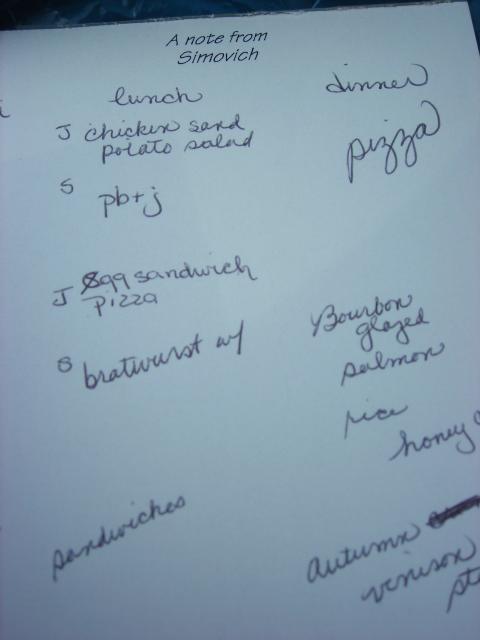 A note from
Simovich
lunch
dinner
J chicken sand
potato salad
pizza
S pb+j
J Egg sandwich
pizza
S bratwurst w/
Bourbon
glazed
salmon
rice
honey
sandwiches
Autumn
venison